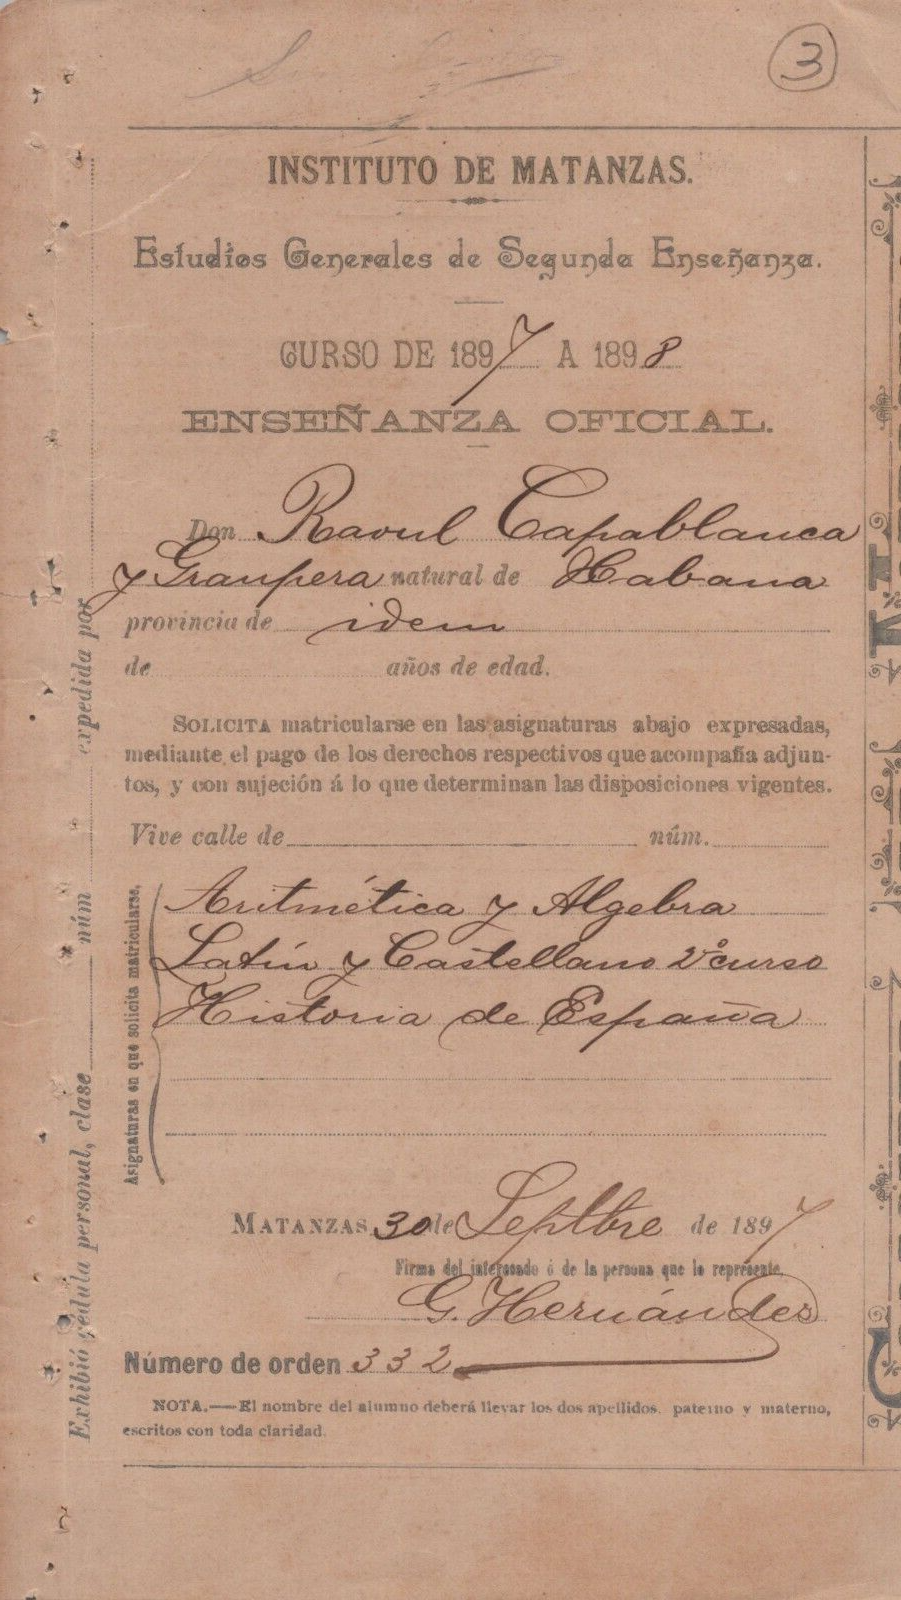 3
INSTITUTO DE MATANZAS.
Estudios Generales de Segunda Enseñanza.
CURSO DE 1897 A 1898
ENSEÑANZA OFICIAL.
Don Raoul Capablanca
y Graupera natural de Habana
provincia de idem
de años de edad.
SOLICITA matricularse en las asignaturas abajo expresadas,
mediante el pago de los derechos respectivos que acompaña adjun-
tos, y con sujeción á lo que determinan las disposiciones vigentes.
Vive calle de núm.
Asignaturas en que solicita matricularse.
Aritmética y Algebra
Latín y Castellano 2º curso
Historia de España
MATANZAS 30 de Septbre de 1897
Firma del interesado ó de la persona que lo represente.
G. Hernández
Número de orden 332
NOTA.—El nombre del alumno deberá llevar los dos apellidos, paterno y materno,
escritos con toda claridad.
Exhibió cédula personal, clase núm expedida por